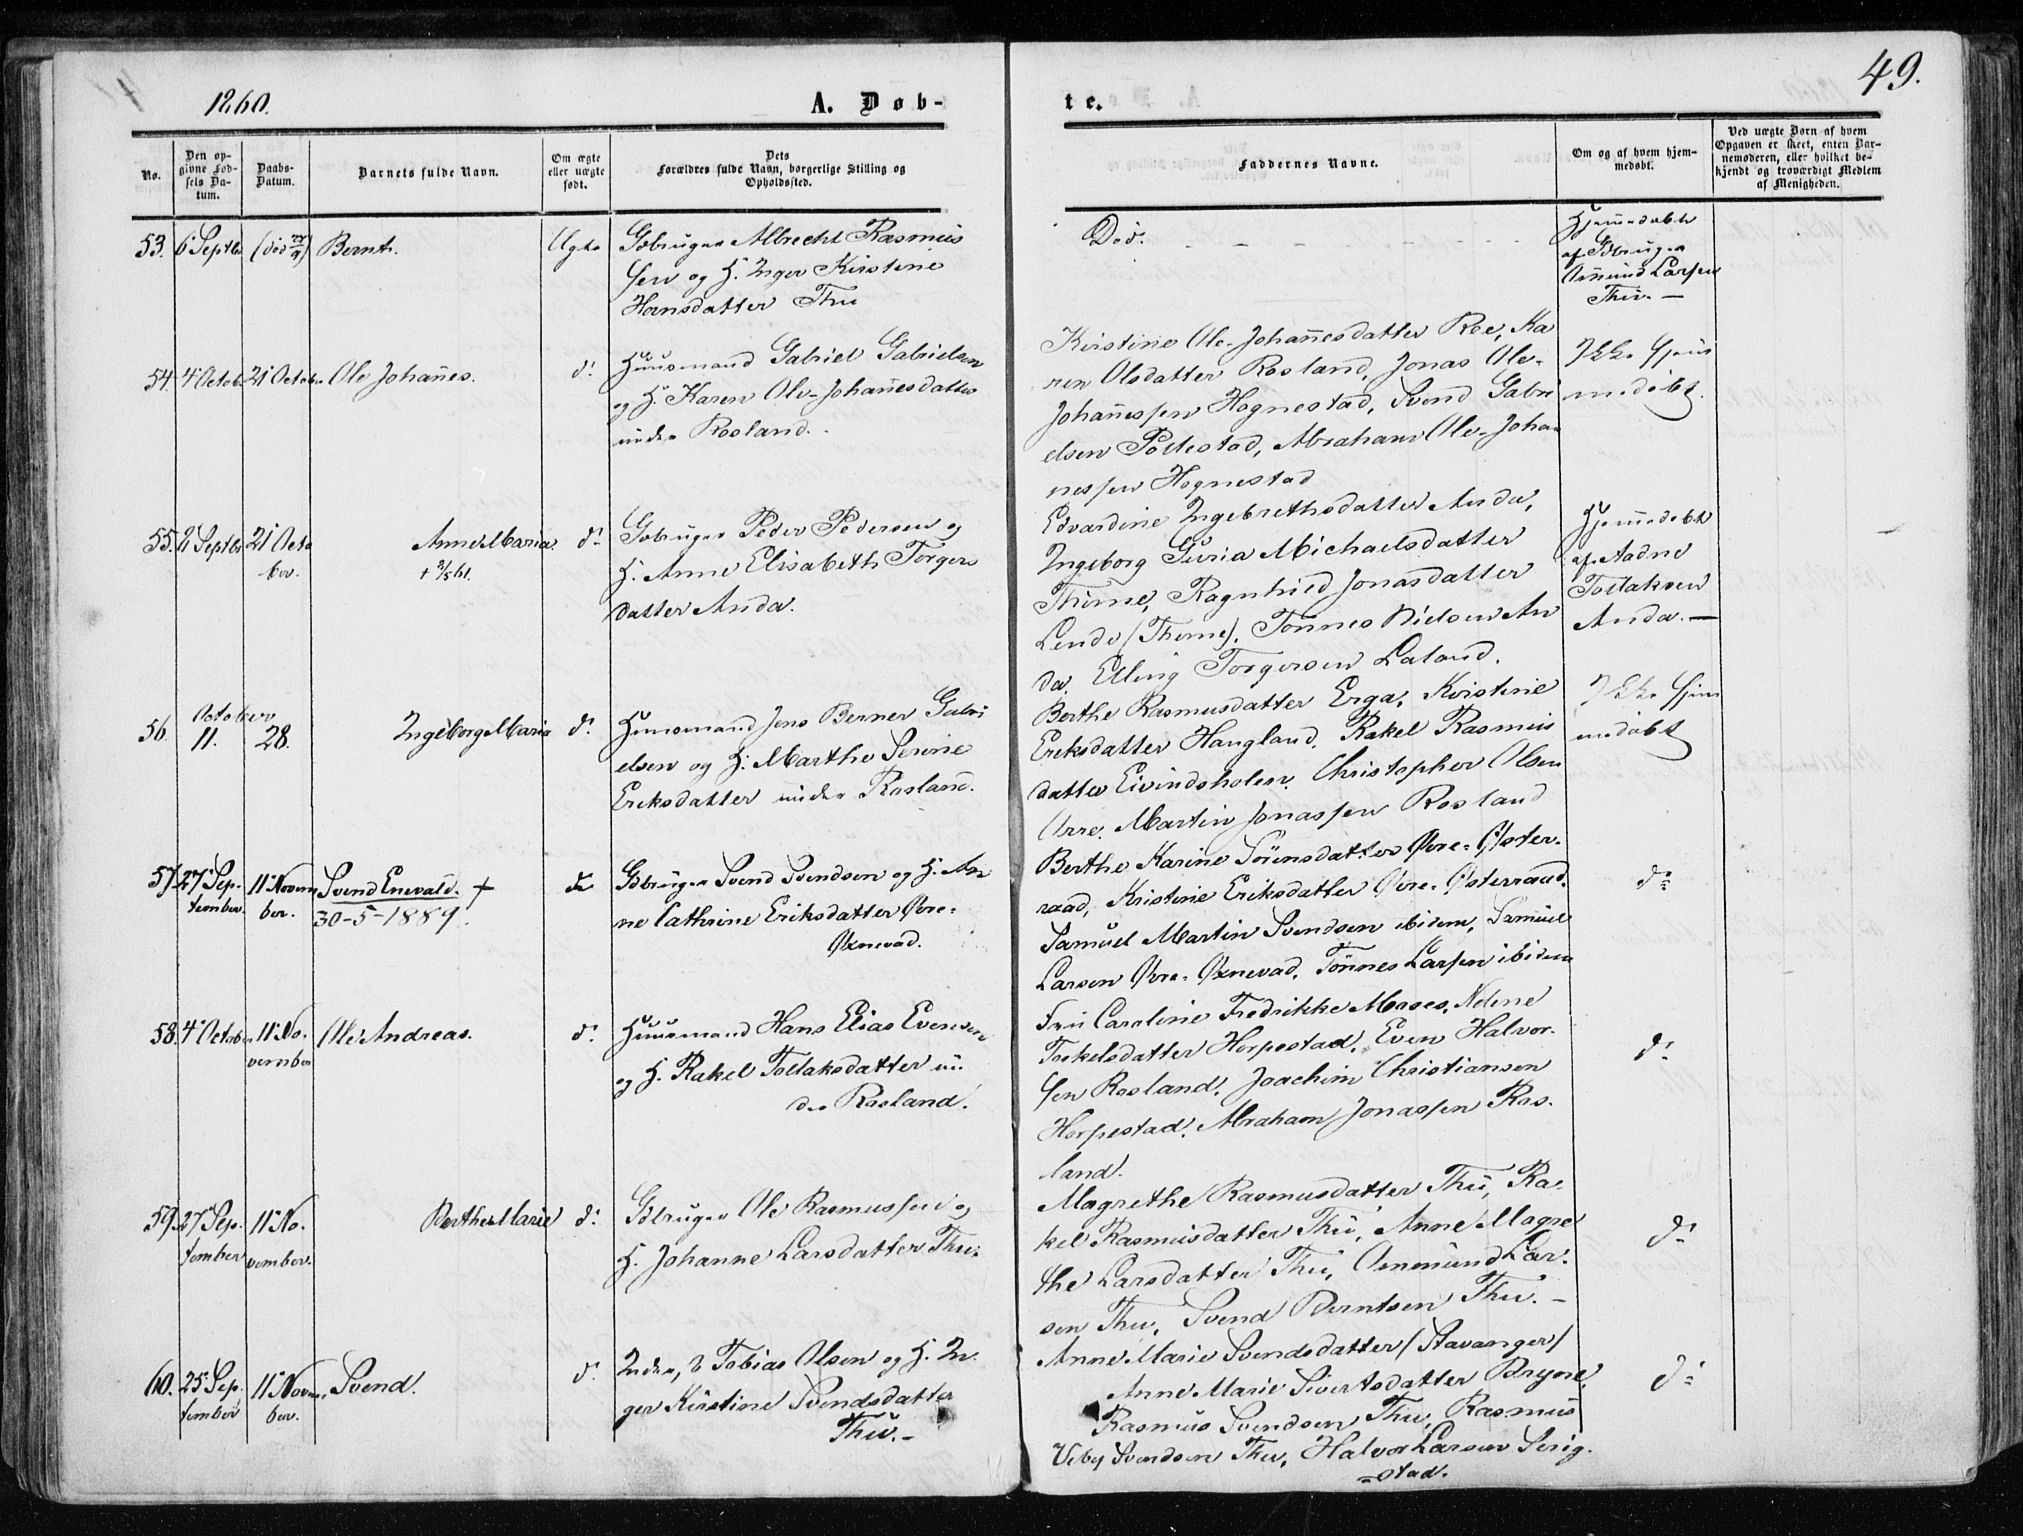 1860.
A. Døb-
te.
49.
No.
Den op-
givne Fød-
sels Da-
tum.
Daabs-
Datum.
Barnets fulde Navn.
Om ægte
eller uægte
født.
Dets
Forældres fulde Navn, borgerlige Stilling og
Opholdssted.
Faddernes Navne.
Om og af hvem hjem-
medøbt.
Ved uægte Børn af hvem
Opgaven er skeet, enten Bar-
nemoderen, eller hvilket be-
kjendt og troværdigt Medlem
af Menigheden.
53. 6 Septbr (død 22/9) Bernt. Ægte
Gbruger Albrecht Rasmus
sen og H. Inger Kirstine
Hansdatter Thu
Død.
Hjemmedøbt
af Gbruger
Osmund Larsen
Thu. —
54. 4 Octob. 21 Octobr Ole Johannes. do
Huusmand Gabriel Gabrielsen
og H. Karen Ole-Johannesdatter
under Rosland.
Kirstine Ole-Johannesdatter Roe, Ka
ren Olsdatter Rosland, Jonas Ole-
Johannessen Hognestad, Svend Gabri
elsen Pollestad, Abraham Ole-Johan
nessen Hognestad
Ikke hjem
medøbt.
55. 2 Septbr 21 Octo
ber.
Anne Maria. do
+ 3/5 61.
Gbruger Peder Pedersen og
H. Anne Elisabeth Torgers
datter Anda.
Edvardine Ingebrethsdatter Anda,
Ingeborg Guria Michaelsdatter
Thime, Ragnhild Jonasdatter
Lende (Thime), Tønnes Nielsen An
da, Elling Torgersen Laland.
Hjemmedøbt
af Aadne
Tollaksen
Anda. —
56. October
11. 28.
Ingeborg Maria do
Huusmand Jens Berner Gabri
elsen og H. Marthe Serine
Eriksdatter under Rosland.
Berthe Rasmusdatter Erga, Kristine
Eriksdatter Haugland, Rakel Rasmus
datter Eivindsholen, Christopher Olsen
Orre, Martin Jonassen Rosland
Ikke hjem
medøbt
57. 27 Sep-
tember. 11 Novem
ber. Svend Enevald. + do
30-5-1889.
Gbruger Svend Svendsen og H. An
ne Cathrine Eriksdatter Øvre-
Øxnevad.
Berthe Karine Sørensdatter Øvre-Øster-
raad, Kristine Eriksdatter Øvre-Østerraad,
Samuel Martin Svendsen ibidem, Samuel
Larsen Øvre-Øxnevad, Tønnes Larsen ibidem
do
58. 4 Octob. 11 No-
vember Ole Andreas. do
Huusmand Hans Elias Evensen
og H. Rakel Tollaksdatter un
der Rosland.
Fru Caroline Fredrikke Moses, Nelene
Torkelsdatter Horpestad, Even Halvor-
sen Rosland, Joachim Christiansen
Horpestad, Abraham Jonassen Ros-
land.
do
59. 27 Sep-
tember 11 No-
vember. Berthe Marie do
Gbruger Ole Rasmussen og
H. Johanne Larsdatter Thu.
Magrethe Rasmusdatter Thu, Ra-
kel Rasmusdatter Thu, Anne Magre
the Larsdatter Thu, Ommund Lar-
sen Thu, Svend Berntsen Thu. —
do
60. 25 Sep-
tember 11 Novem
ber. Svend. do
Tobias Olsen og H. In-
ger Kirstine Svendsdatter
Thu. —
Anne Marie Svendsdatter /Stavanger/
Anne Marie Sivertsdatter Bryne,
Rasmus Svendsen Thu, Rasmus
Svendsen Thu, Halvor Larsen Serig-
stad.
do